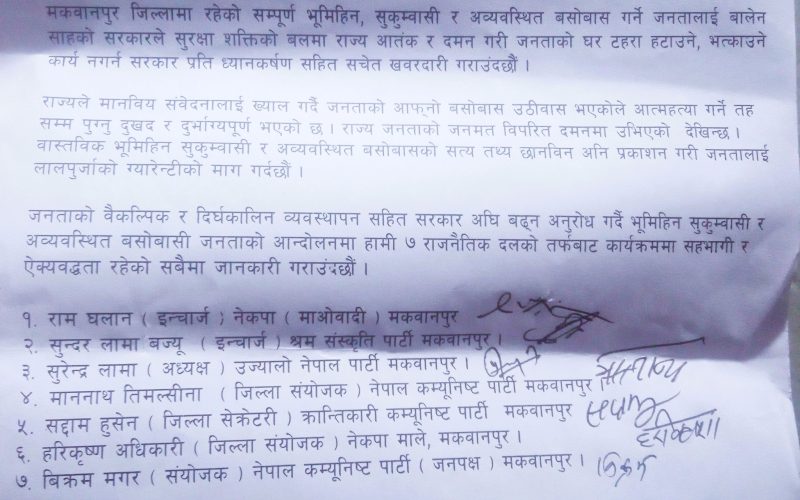 मकवानपुर जिल्लामा रहेको सम्पूर्ण भूमिहिन, सुकुम्वासी र अव्यवस्थित बसोबास गर्ने जनतालाई बालेन
साहको सरकारले सुरक्षा शक्तिको बलमा राज्य आतंक र दमन गरी जनताको घर टहरा हटाउने, भत्काउने
कार्य नगर्न सरकार प्रति ध्यानकर्षण सहित सचेत खवरदारी गराउंदछौं ।
राज्यले मानविय संवेदनालाई ख्याल गर्दै जनताको आफ्नो बसोबास उठीवास भएकोले आत्महत्या गर्ने तह
सम्म पुग्नु दुखद र दुर्भाग्यपूर्ण भएको छ । राज्य जनताको जनमत विपरित दमनमा उभिएको देखिन्छ ।
वास्तविक भूमिहिन सुकुम्वासी र अव्यवस्थित बसोबासको सत्य तथ्य छानविन अनि प्रकाशन गरी जनतालाई
लालपुर्जाको ग्यारेन्टीको माग गर्दछौं ।
जनताको वैकल्पिक र दिर्घकालिन व्यवस्थापन सहित सरकार अघि बढ्न अनुरोध गर्दै भूमिहिन सुकुम्वासी र
अव्यवस्थित बसोबासी जनताको आन्दोलनमा हामी ७ राजनैतिक दलको तर्फबाट कार्यक्रममा सहभागी र
ऐक्यवद्धता रहेको सबैमा जानकारी गराउंदछौं ।
१. राम घलान ( इन्चार्ज ) नेकपा ( माओवादी ) मकवानपुर
२. सुन्दर लामा बज्यू ( इन्चार्ज ) श्रम संस्कृति पार्टी मकवानपुर ।
३. सुरेन्द्र लामा ( अध्यक्ष ) उज्यालो नेपाल पार्टी मकवानपुर ।
४. माननाथ तिमल्सीना ( जिल्ला संयोजक ) नेपाल कम्युनिष्ट पार्टी मकवानपुर ।
५. सद्दाम हुसेन ( जिल्ला सेक्रेटरी ) क्रान्तिकारी कम्युनिष्ट पार्टी मकवानपुर
६. हरिकृष्ण अधिकारी ( जिल्ला संयोजक ) नेकपा माले, मकवानपुर ।
७. बिक्रम मगर ( संयोजक ) नेपाल कम्युनिष्ट पार्टी ( जनपक्ष ) मकवानपुर ।